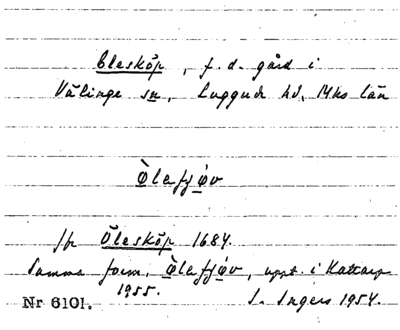 Oleskøp, f.d. gård i
Välinge sn, Luggude hd, Mhs län
Òlafjǿv
Jfr Öleskøp 1684.
Samma form, Òlafjǿv, uppt. i Kattarp
1955.
Nr 6101. I. Ingers 1954.